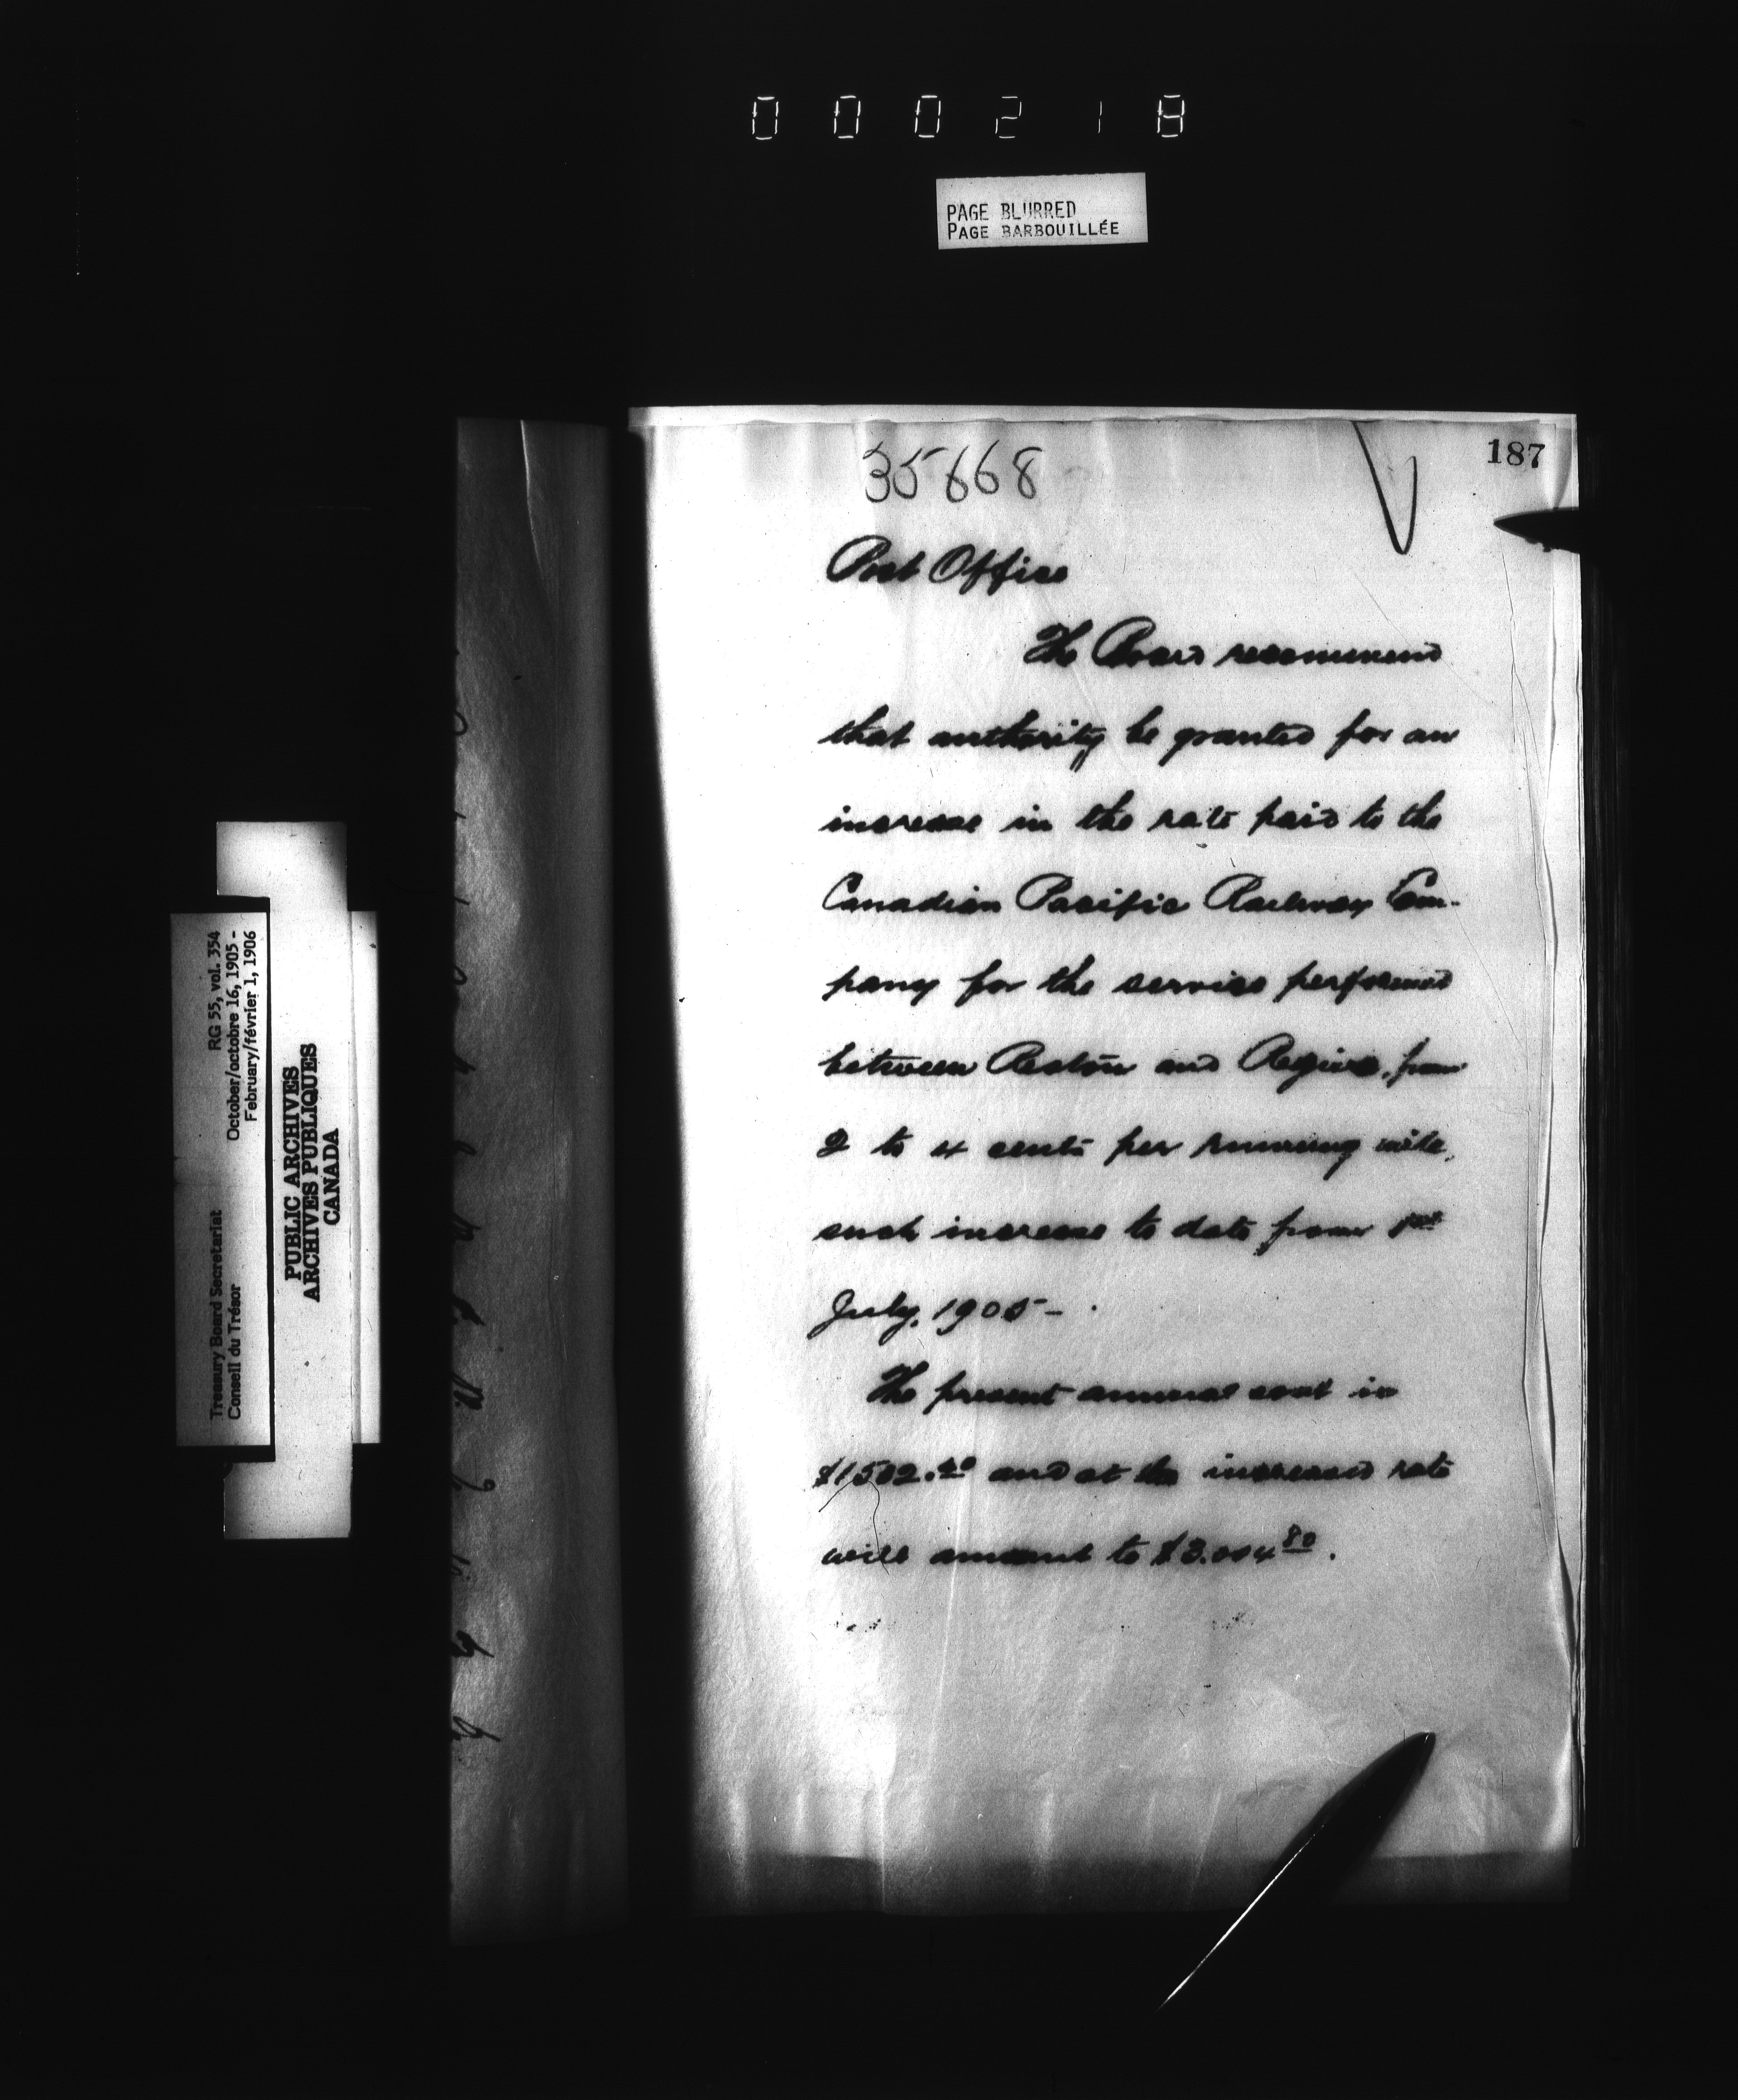 000218
PAGE BLURRED
PAGE BARBOUILLÉE
187
35668
Post Office
The Board recommend
that authority be granted for an
increase in the rate paid to the
Canadian Pacific Railway Com-
pany for the service performed
between Reston and Regina, from
2 to 4 cents per running mile,
such increase to date from 1st
July, 1905-
The present annual cost is
$1502.40 and at the increased rate
will amount to $3.004 80.
Treasury Board Secretariat RG 55, vol. 354
Conseil du Trésor October/octobre 16, 1905 -
February/février 1, 1906
PUBLIC ARCHIVES
ARCHIVES PUBLIQUES
CANADA